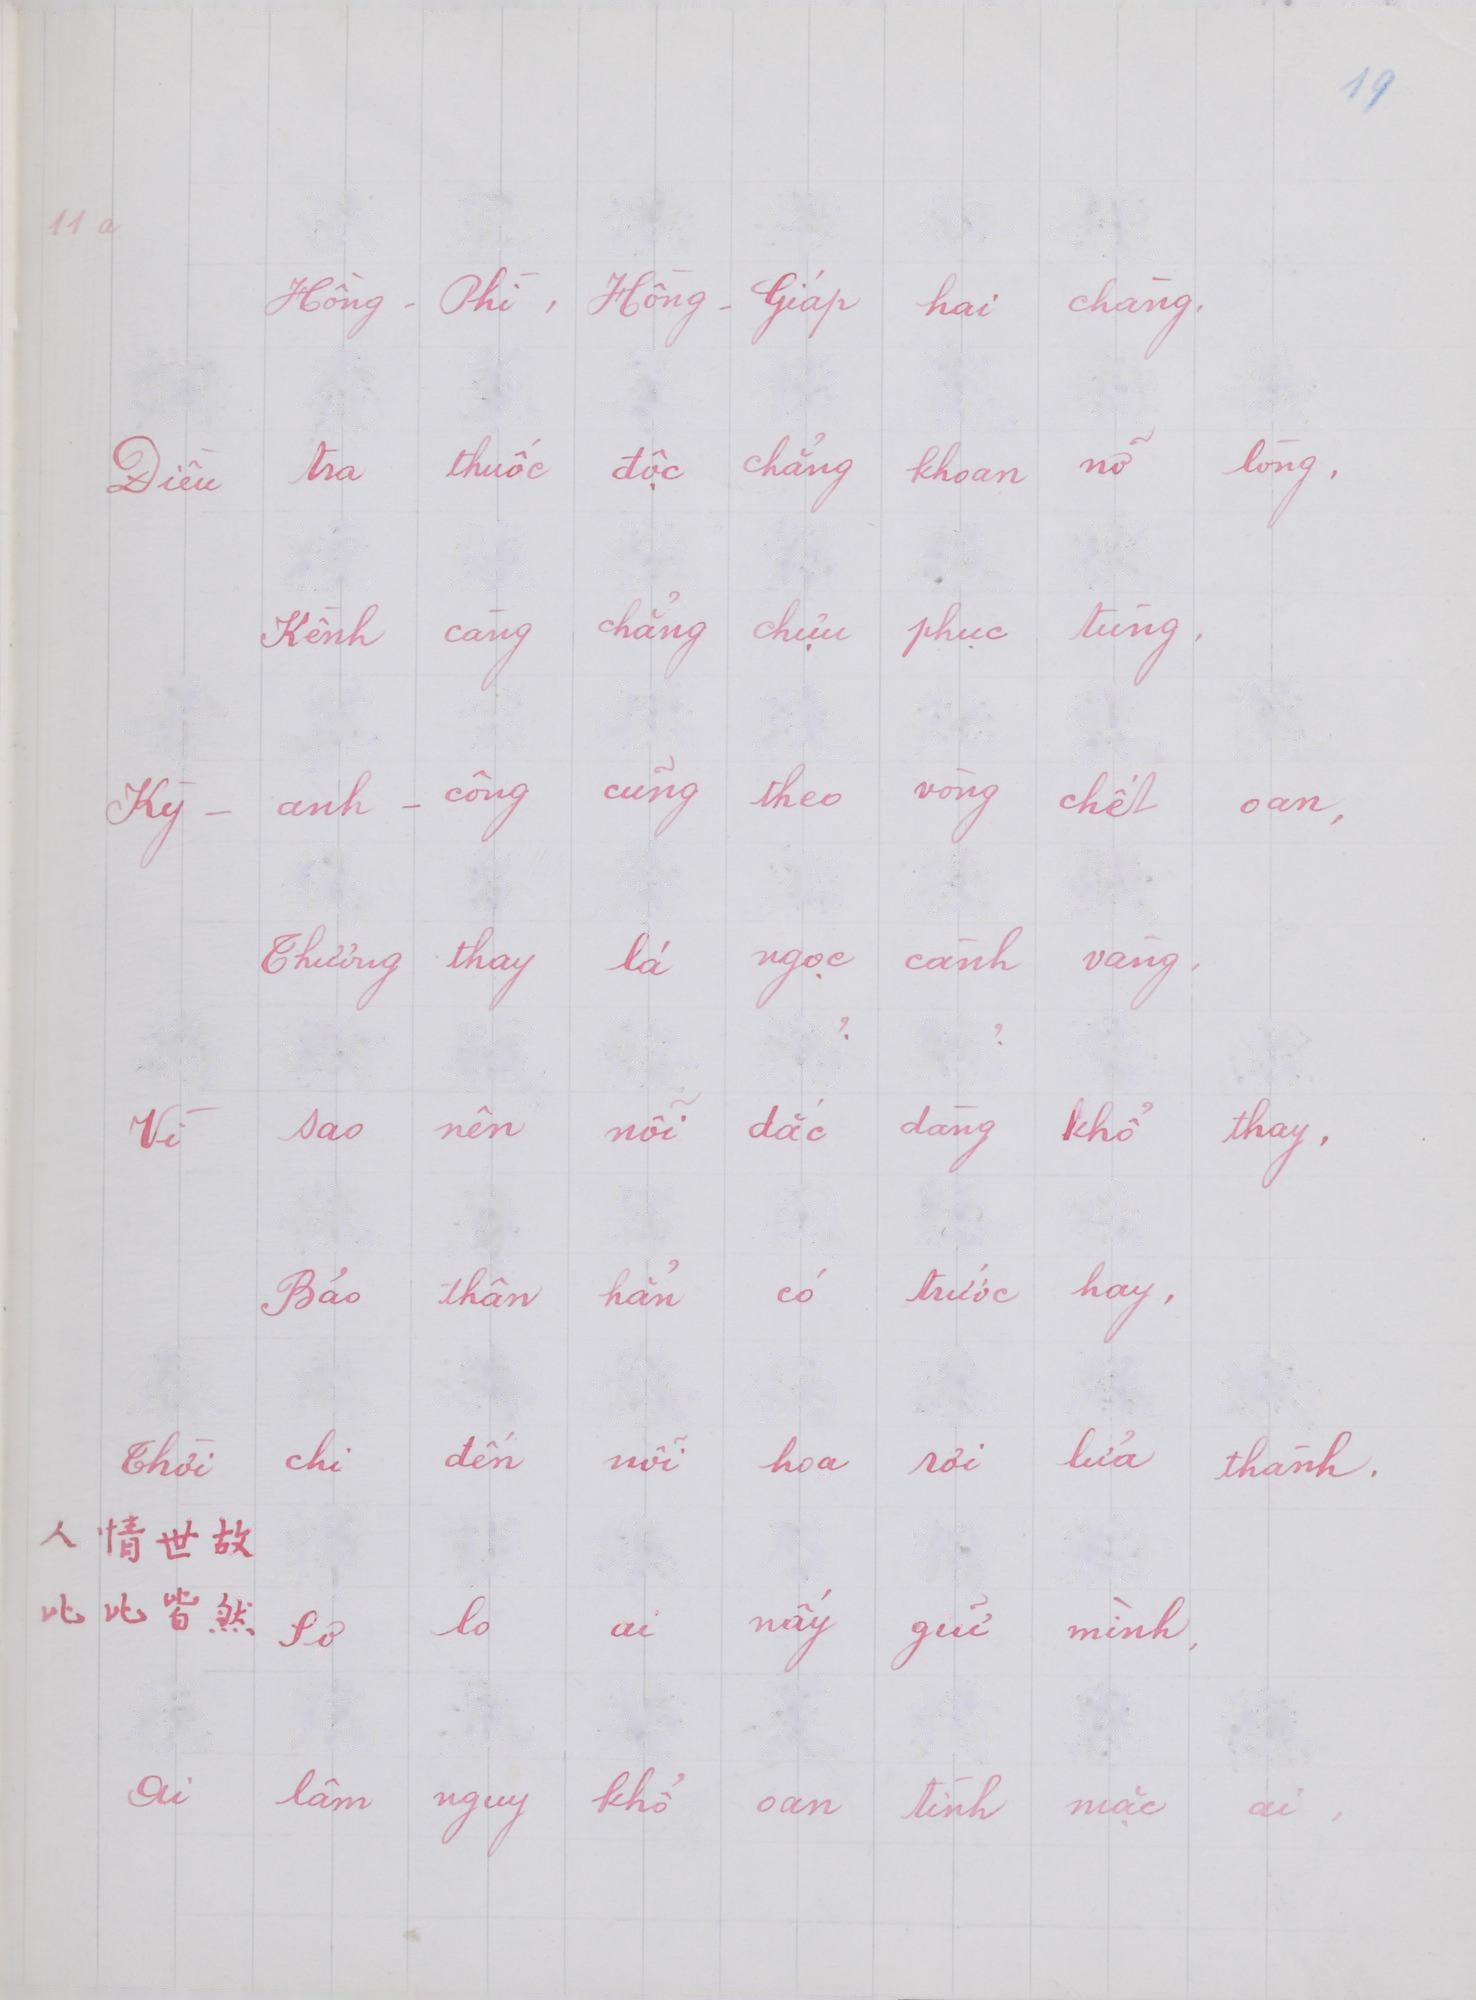 19
11 a
Hồng - Phì, Hồng - Giáp hai chàng.
Điều tra thuốc độc chẳng khoan nỗ lòng,
Kềnh càng chẳng chịu phục tùng,
Kỳ - anh - công cũng theo vòng chết oan,
Thương thay lá ngọc cành vàng,
? ?
Vì sao nên nỗi dắc dàng khổ thay,
Bảo thân hẳn có trước hay,
Thời chi đến nỗi hoa rơi lửa thành.
人情世故
比比皆然
Sở lo ai nấy giữ mình,
Ai lâm nguy khổ oan tình mặc ai,